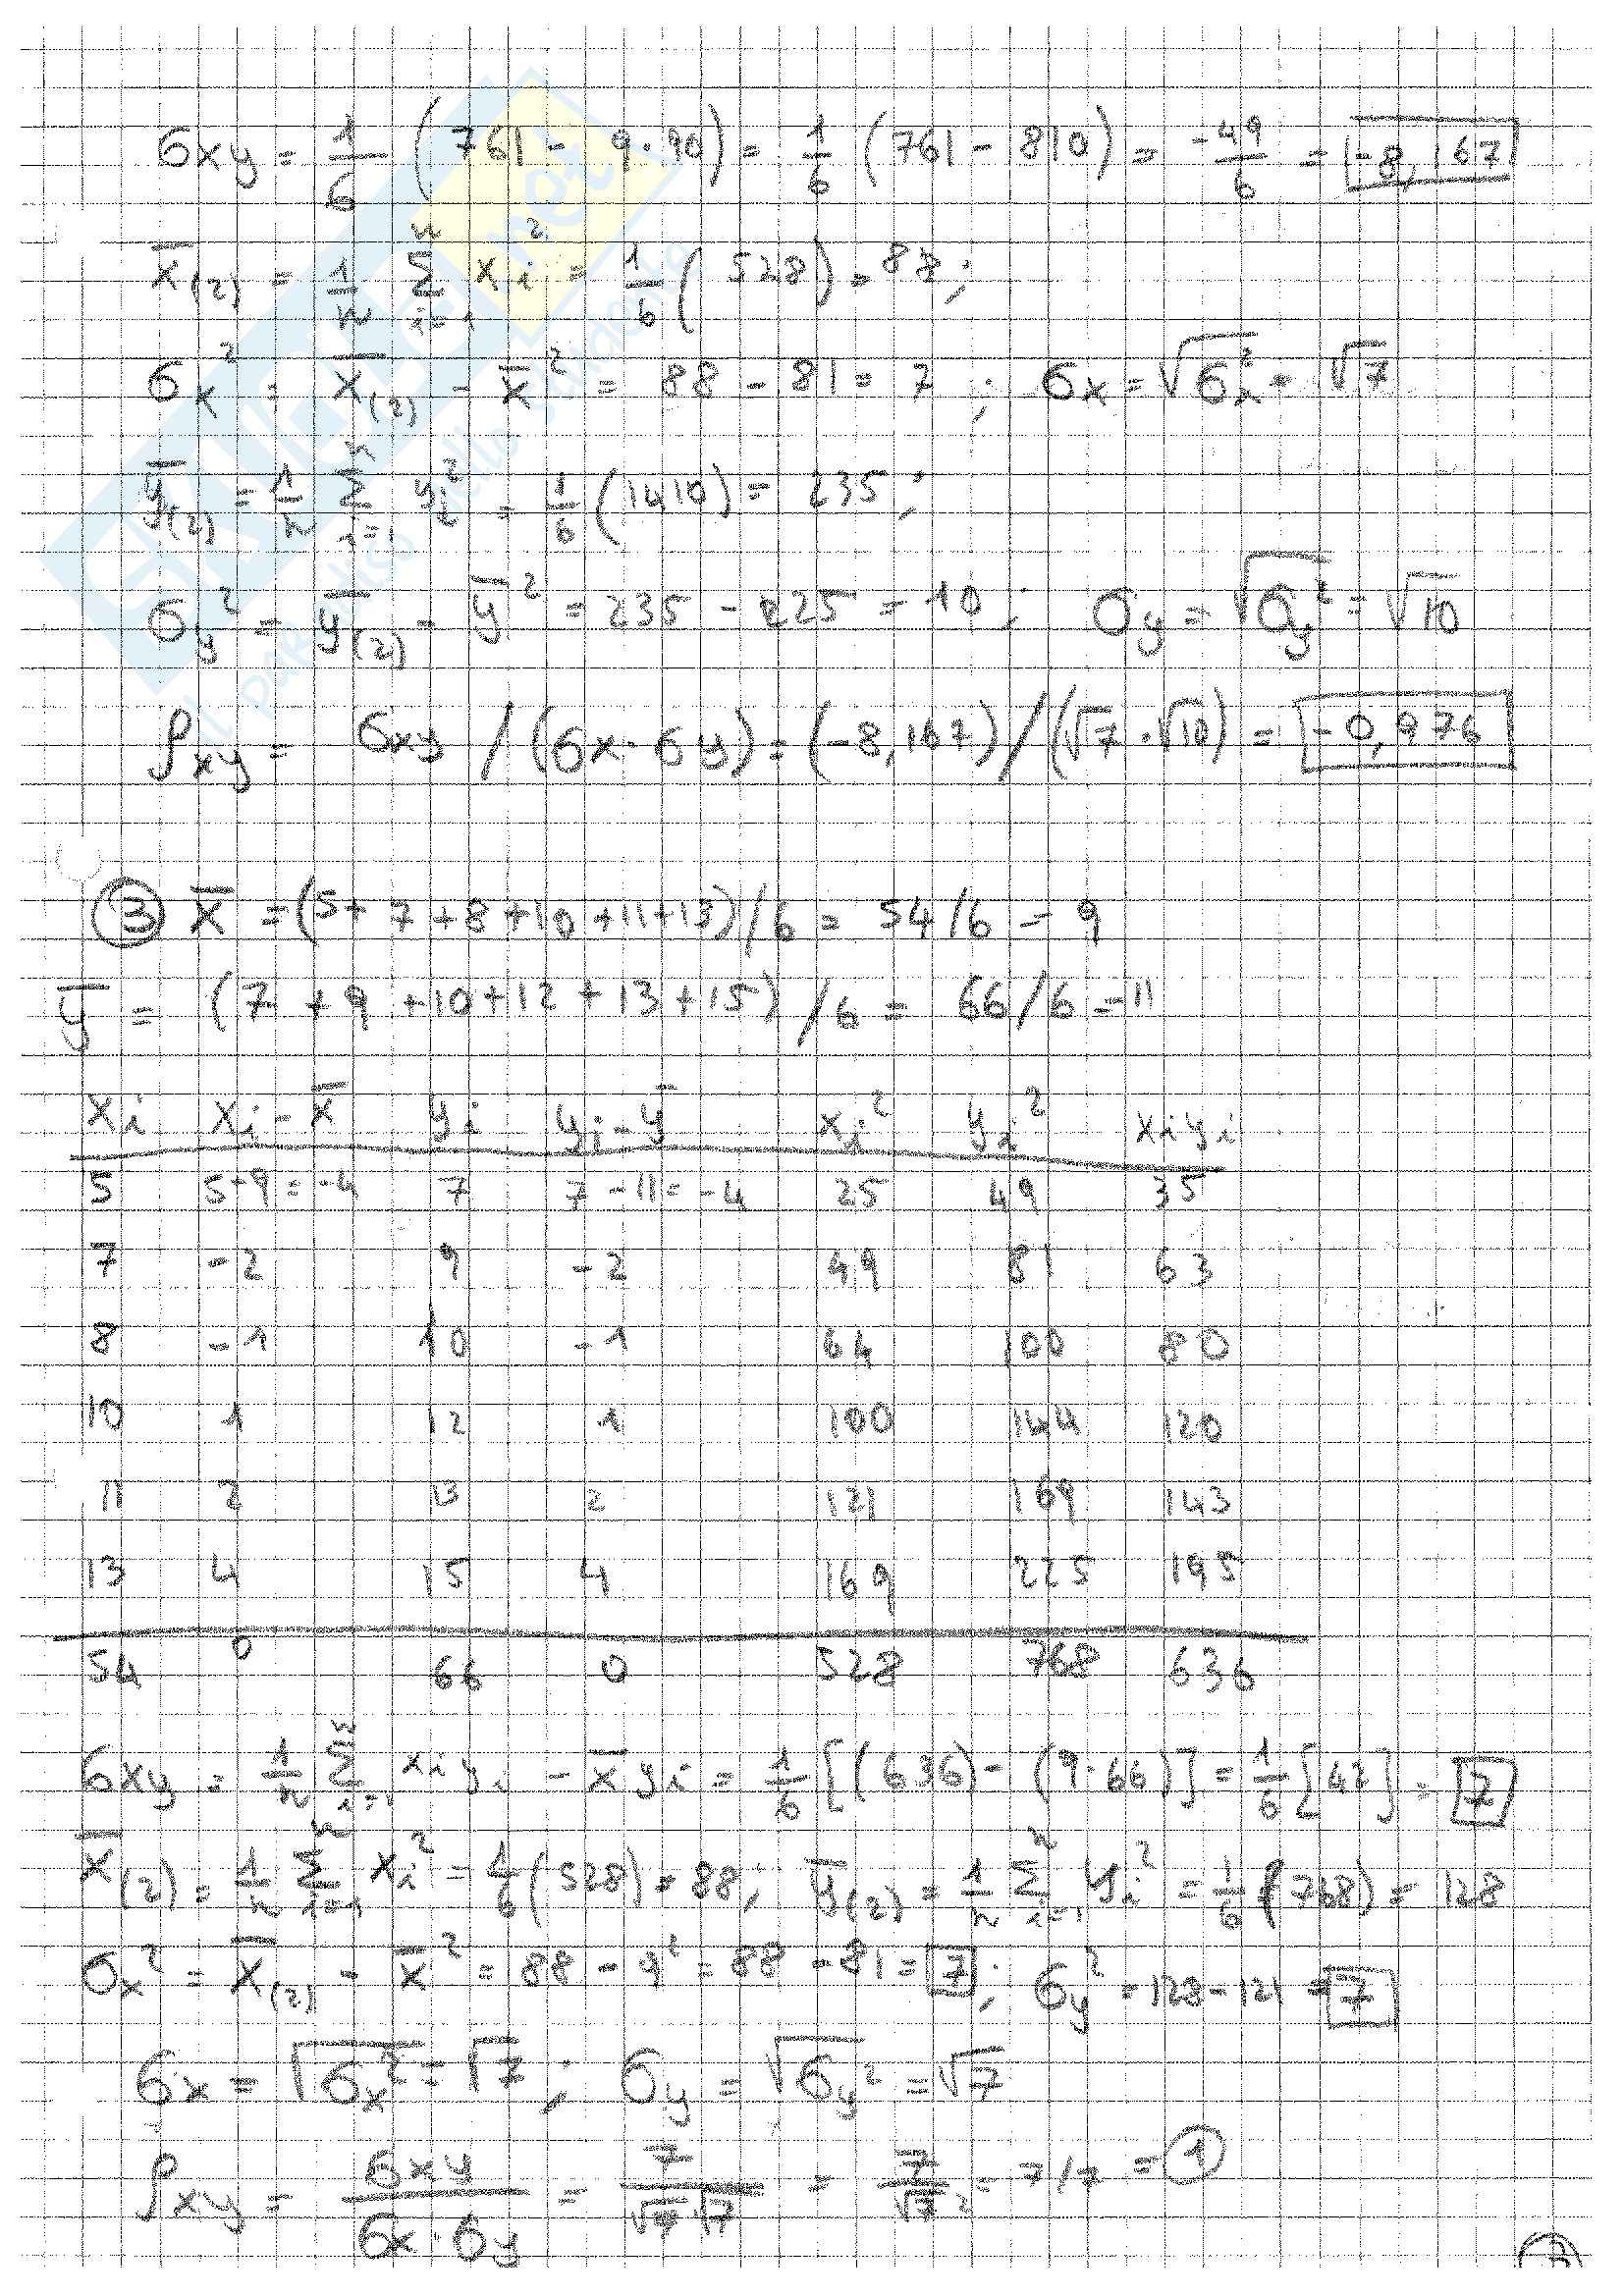 σxy = 1/6 (761 - 9·90) = 1/6 (761 - 810) = -49/6 = -8,167
x̄(2) = 1/n Σ i=1 n xi² = 1/6 (528) = 88;
σx² = x̄(2) - x̄² = 88 - 81 = 7 ; σx = √σx² = √7
ȳ(2) = 1/n Σ i=1 n yi² = 1/6 (1410) = 235 ;
σy² = ȳ(2) - ȳ² = 235 - 225 = 10 ; σy = √σy² = √10
ρxy = σxy / (σx · σy) = (-8,167) / (√7 · √10) = -0,976
3 x̄ = (5 + 7 + 8 + 10 + 11 + 13) / 6 = 54/6 = 9
ȳ = (7 + 9 + 10 + 12 + 13 + 15) / 6 = 66/6 = 11
xi xi - x̄ yi yi - ȳ xi² yi² xiyi
5 5-9 = -4 7 7 - 11 = -4 25 49 35
7 -2 9 -2 49 81 63
8 -1 10 -1 64 100 80
10 1 12 1 100 144 120
11 2 13 2 121 169 143
13 4 15 4 169 225 195
54 0 66 0 528 768 636
σxy = 1/n Σ i=1 n xi yi - x̄ yi = 1/6 [(636) - (9·66)] = 1/6 [42] = 7
x̄(2) = 1/n Σ i=1 n xi² = 1/6 (528) = 88; ȳ(2) = 1/n Σ i=1 n yi² = 1/6 (768) = 128
σx² = x̄(2) - x̄² = 88 - 9² = 88 - 81 = 7 ; σy² = 128 - 121 = 7
σx = √σx² = √7 ; σy = √σy² = √7
ρxy = σxy / σx · σy = 7 / √7 · √7 = 7 / √7² = 7/7 = 1